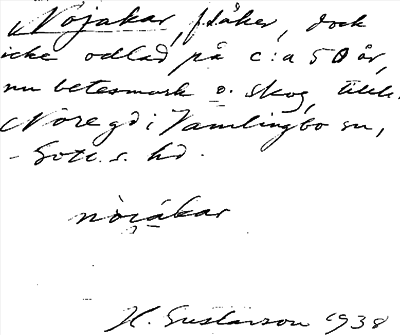 Nojakar, flåker, dock
icke odlad på c:a 50 år,
nu betesmark o. skog, tillh.
Nore gd i Vamlingbo sn,
Gotl. s. hd.
nòrákar
H. Gustavson 1938